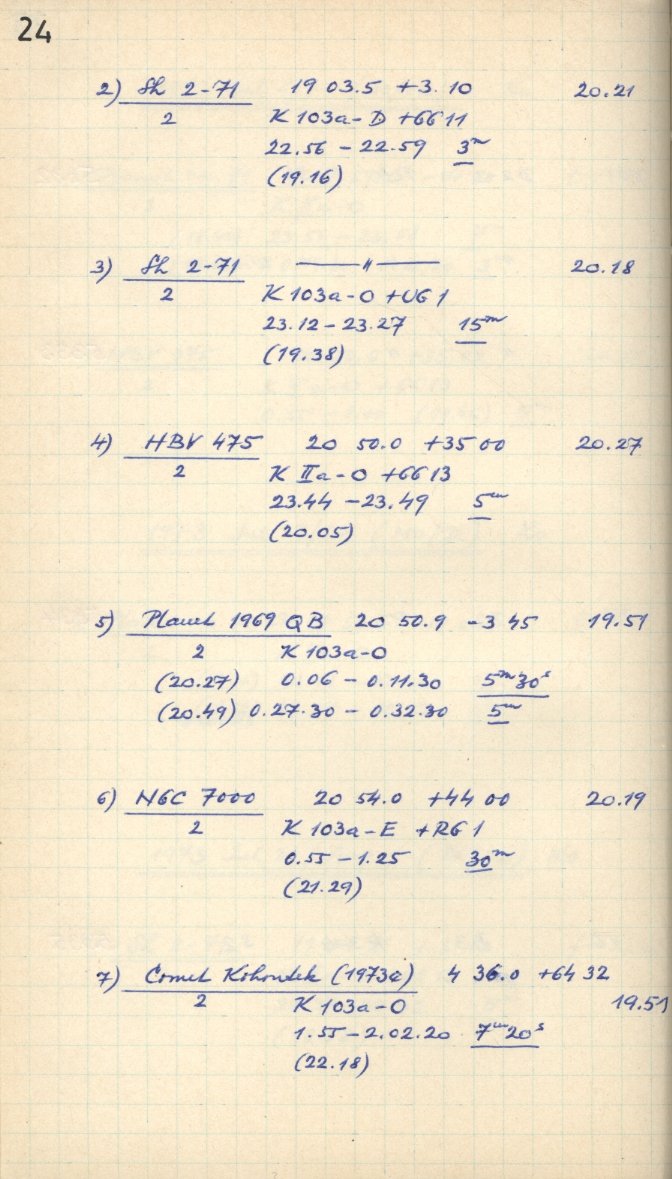 24
2) Sh 2-71 19 03.5 +3.10 20.21
2 K 103a-D +GG11
22.56 - 22.59 3m
(19.16)
3) Sh 2-71 —— " —— 20.18
2 K 103a-O +UG1
23.12 - 23.27 15m
(19.38)
4) HBV 475 20 50.0 +35 00 20.27
2 K IIa-O +GG13
23.44 - 23.49 5m
(20.05)
5) Planet 1969 QB 20 50.9 -3 45 19.51
2 K 103a-O
(20.27) 0.06 - 0.11.30 5m30s
(20.49) 0.27.30 - 0.32.30 5m
6) NGC 7000 20 54.0 +44 00 20.19
2 K 103a-E +RG1
0.55 - 1.25 30m
(21.29)
7) Comet Kohoutek (1973e) 4 36.0 +64 32
2 K 103a-O 19.51
1.55 - 2.02.20 7m20s
(22.18)